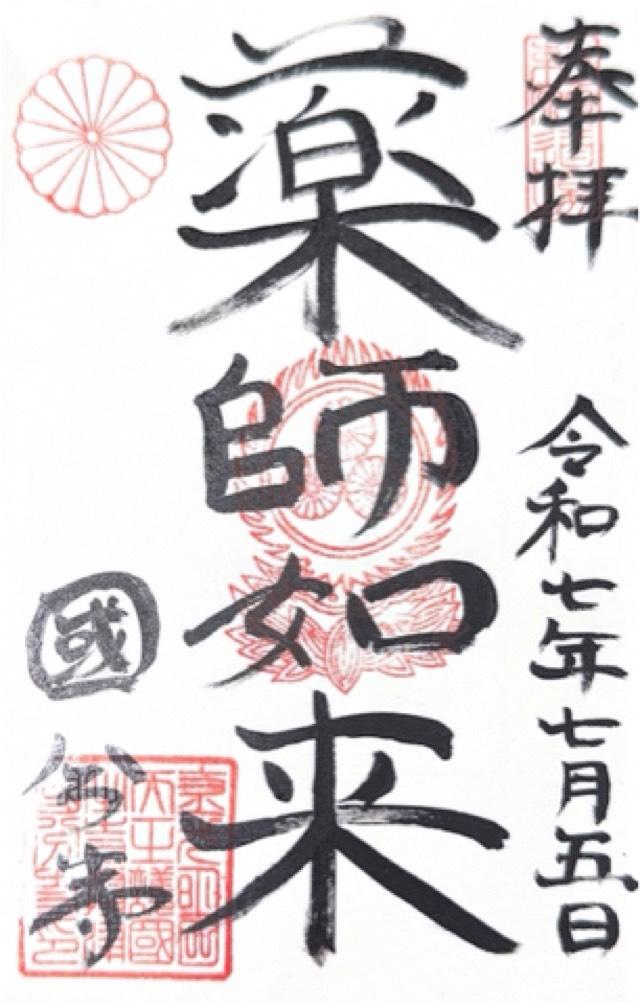 奉拝
令和七年七月五日
薬師如来
國分寺